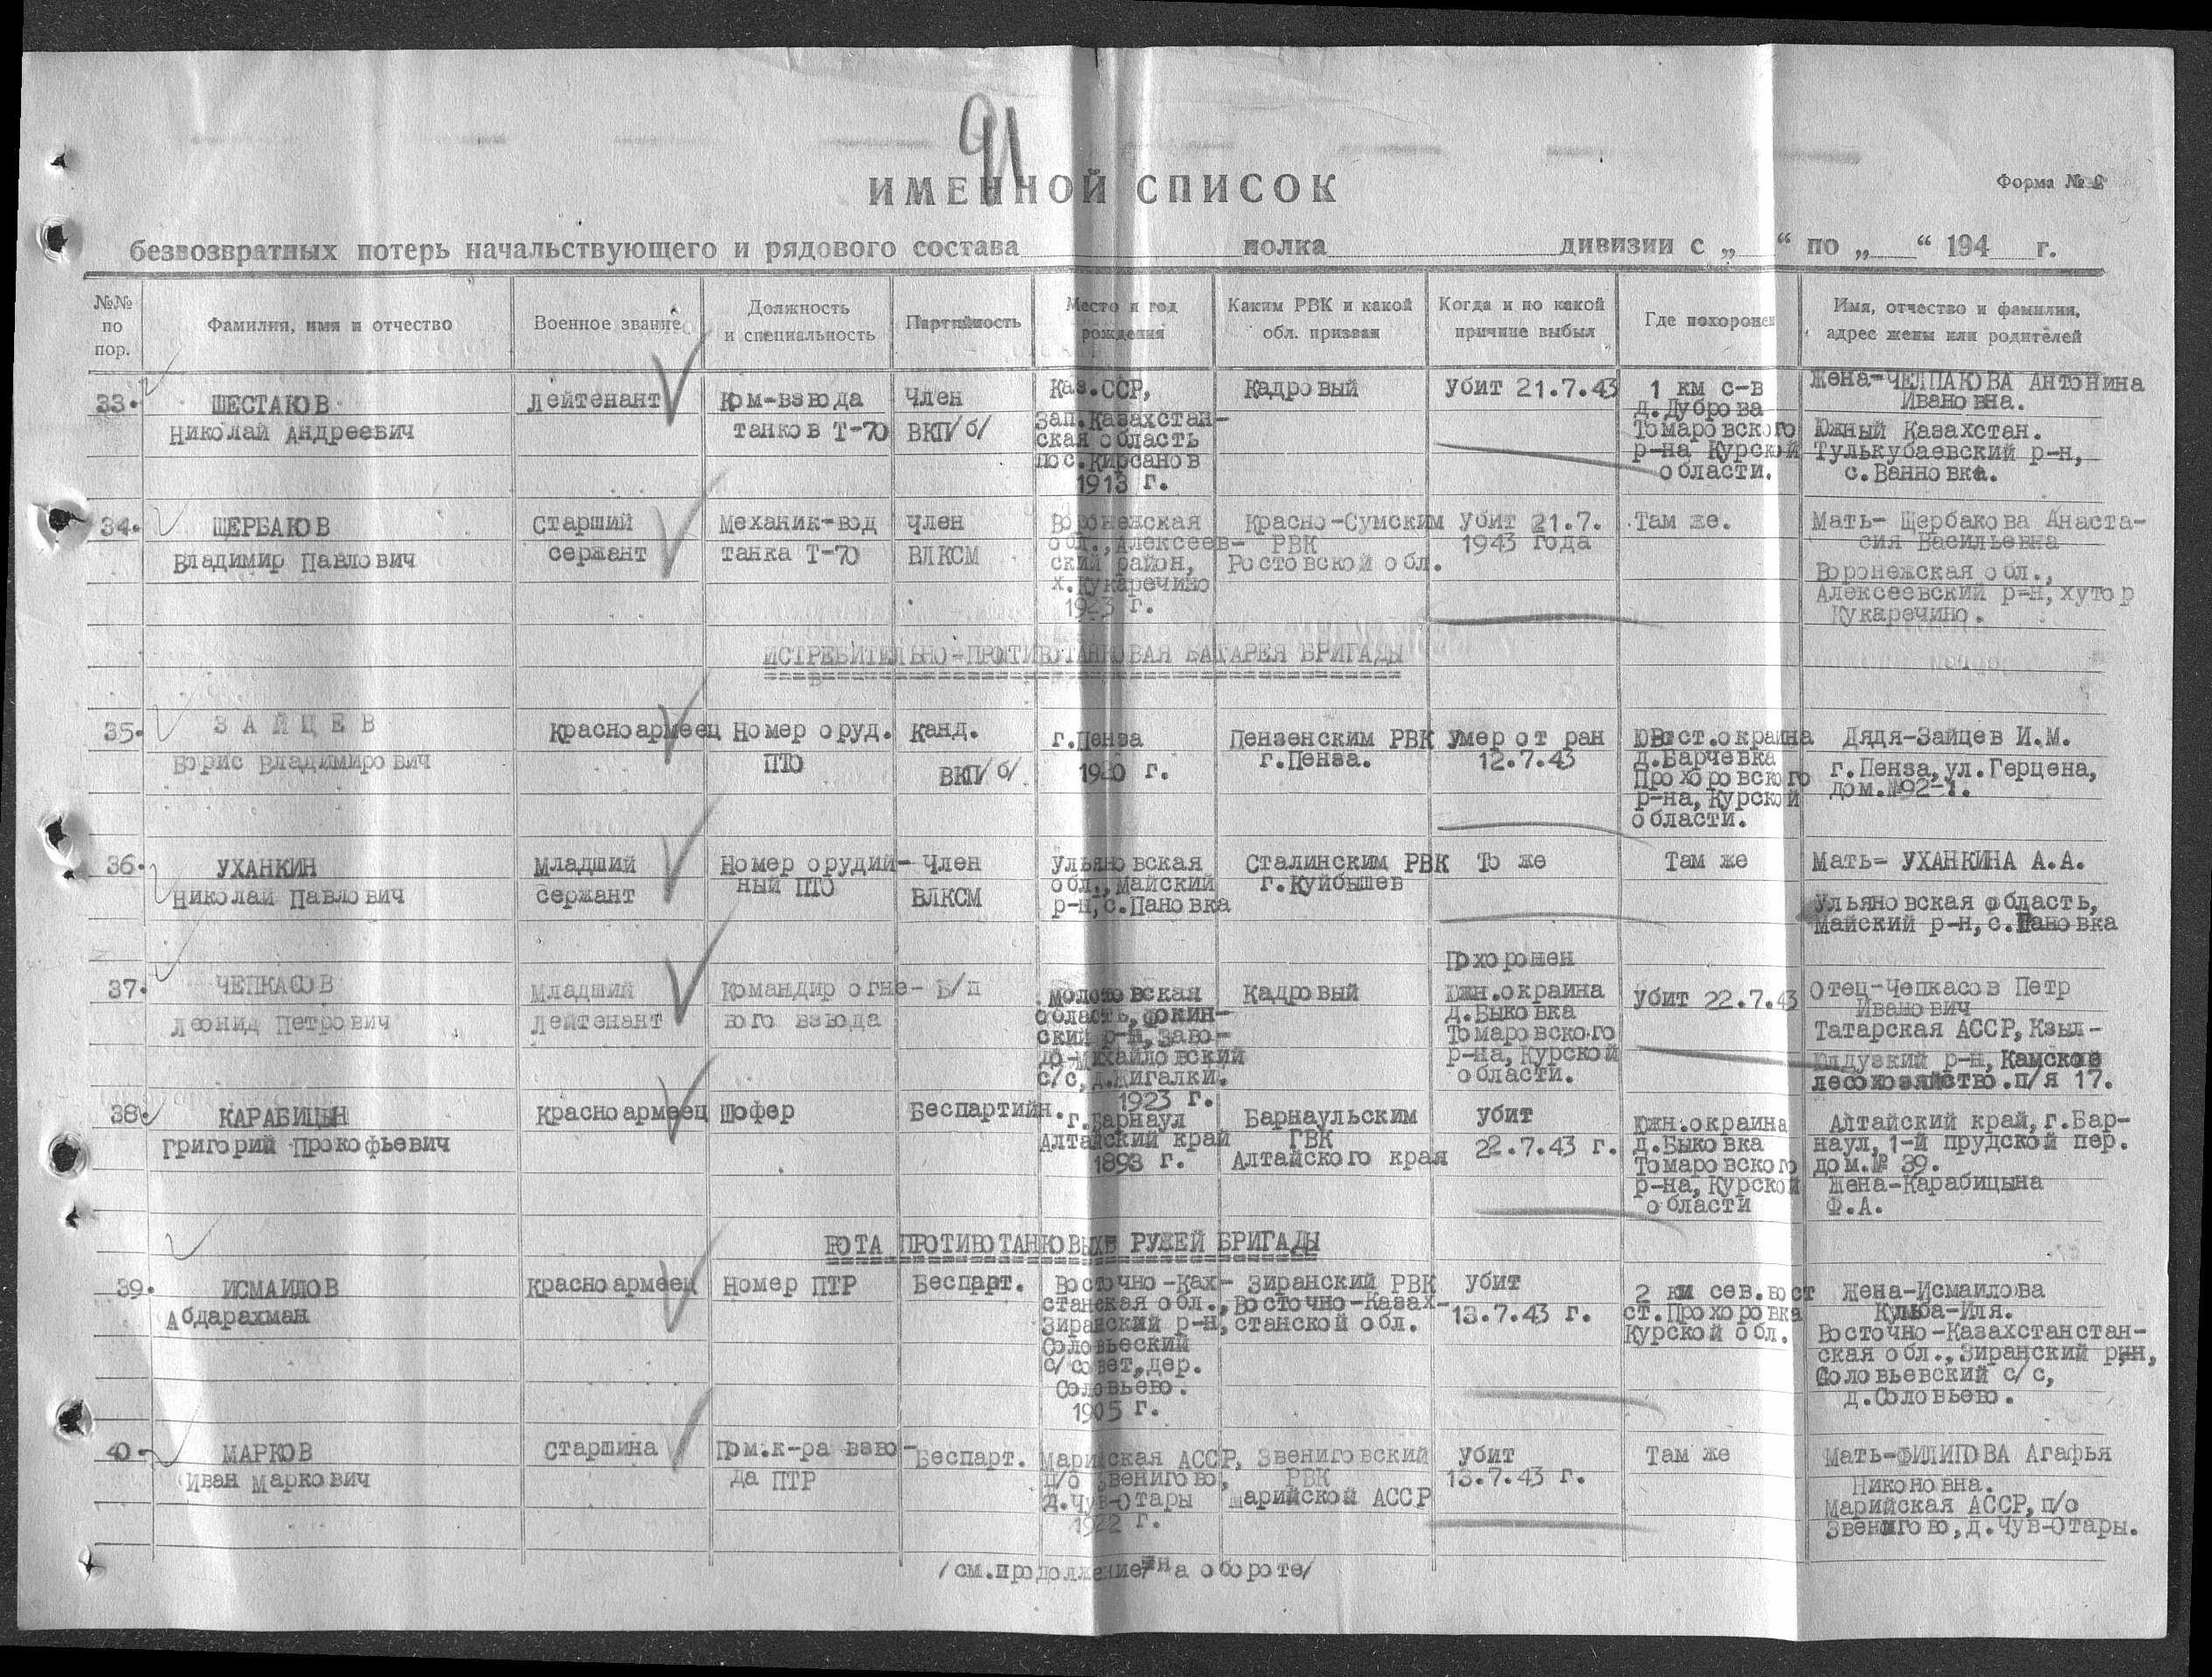 91
ИМЕННОЙ СПИСОК
Форма № 2
безвозвратных потерь начальствующего и рядового состава полка дивизии с „ “ по „ “ 194 г.
№№ по пор.
Фамилия, имя и отчество
Военное звание
Должность и специальность
Партийность
Место и год рождения
Каким РВК и какой обл. призван
Когда и по какой причине выбыл
Где похоронен
Имя, отчество и фамилия, адрес жены или родителей
33.
ШЕСТАКОВ
Николай Андреевич
Лейтенант
Ком-взвода
танков Т-70
Член
ВКП/б/
Каз.ССР,
Зап.Казахстан-
ская область
пос.Кирсанов
1913 г.
Кадровый
Убит 21.7.43
1 км с-в
д.Дуброва
Томаровского
р-на Курской
области.
Жена-ЧЕЛПАКОВА Антонина
Ивановна.
Южный Казахстан.
Тулькубаевский р-н,
с.Ванновка.
34.
ЩЕРБАКОВ
Владимир Павлович
Старший
сержант
Механик-вод
танка Т-70
Член
ВЛКСМ
Воронежская
обл.,Алексеев-
ский район,
х.Кукаречино
1923 г.
Красно-Сумским
РВК
Ростовской обл.
Убит 21.7.
1943 года
Там же.
Мать- Щербакова Анаста-
сия Васильевна
Воронежская обл.,
Алексеевский р-н,хутор
Кукаречино.
ИСТРЕБИТЕЛЬНО-ПРОТИВОТАНКОВАЯ БАТАРЕЯ БРИГАДЫ
35.
ЗАЙЦЕВ
Борис Владимирович
Красноармеец
Номер оруд.
ПТО
Канд.
ВКП/б/
г.Пенза
1920 г.
Пензенским РВК
г.Пенза.
Умер от ран
12.7.43
ЮВост.окраина
д.Барчевка
Прохоровского
р-на,Курской
области.
Дядя-Зайцев И.М.
г.Пенза,ул.Герцена,
дом.№92-1.
36.
УХАНКИН
Николай Павлович
Младший
сержант
Номер орудий-
ный ПТО
Член
ВЛКСМ
Ульяновская
обл.,Майский
р-н,с.Пановка
Сталинским РВК
г.Куйбышев
То же
Там же
Мать- УХАНКИНА А.А.
Ульяновская область,
Майский р-н,с.Пановка
37.
ЧЕПКАСОВ
Леонид Петрович
Младший
Лейтенант
Командир огне-
вого взвода
Б/п
Молотовская
область,Фокин-
ский р-н,Заво-
до-Михайловский
с/с,д.Жигалки.
1923 г.
Кадровый
Похоронен
Южн.окраина
д.Быковка
Томаровского
р-на,Курской
области.
Убит 22.7.43
Отец-Чепкасов Петр
Иванович
Татарская АССР,Кзыл-
Юлдузкий р-н,Камское
лесохозяйство.п/я 17.
38.
КАРАБИЦЫН
Григорий Прокофьевич
Красноармеец
Шофер
Беспартийн.
г.Барнаул
Алтайский край
1893 г.
Барнаульским
ГВК
Алтайского края
убит
22.7.43 г.
Южн.окраина
д.Быковка
Томаровского
р-на,Курской
области
Алтайский край,г.Бар-
наул,1-й прудской пер.
дом.№ 39.
Жена-Карабицына
Ф.А.
РОТА ПРОТИВОТАНКОВЫХ РУЖЕЙ БРИГАДЫ
39.
ИСМАИЛОВ
Абдарахман
Красноармеец
Номер ПТР
Беспарт.
Восточно-Ках-
станская обл.,
Зиранский р-н,
Соловьеский
с/совет,дер.
Соловьево.
1905 г.
Зиранский РВК
Восточно-Казах-
станской обл.
убит
13.7.43 г.
2 км сев.вост
ст.Прохоровка
Курской обл.
Жена-Исмаилова
Кульба-Иля.
Восточно-Казахстанстан-
ская обл.,Зиранский р-н,
Соловьевский с/с,
д.Соловьево.
40.
МАРКОВ
Иван Маркович
Старшина
Пом.к-ра взво-
да ПТР
Беспарт.
Марийская АССР,
п/о Звенигово,
д.Чув-Отары
1922 г.
Звениговский
РВК
Марийской АССР
убит
13.7.43 г.
Там же
Мать-ФИЛИПОВА Агафья
Никоновна.
Марийская АССР,п/о
Звенигово,д.Чув-Отары.
/см.продолжение на обороте/